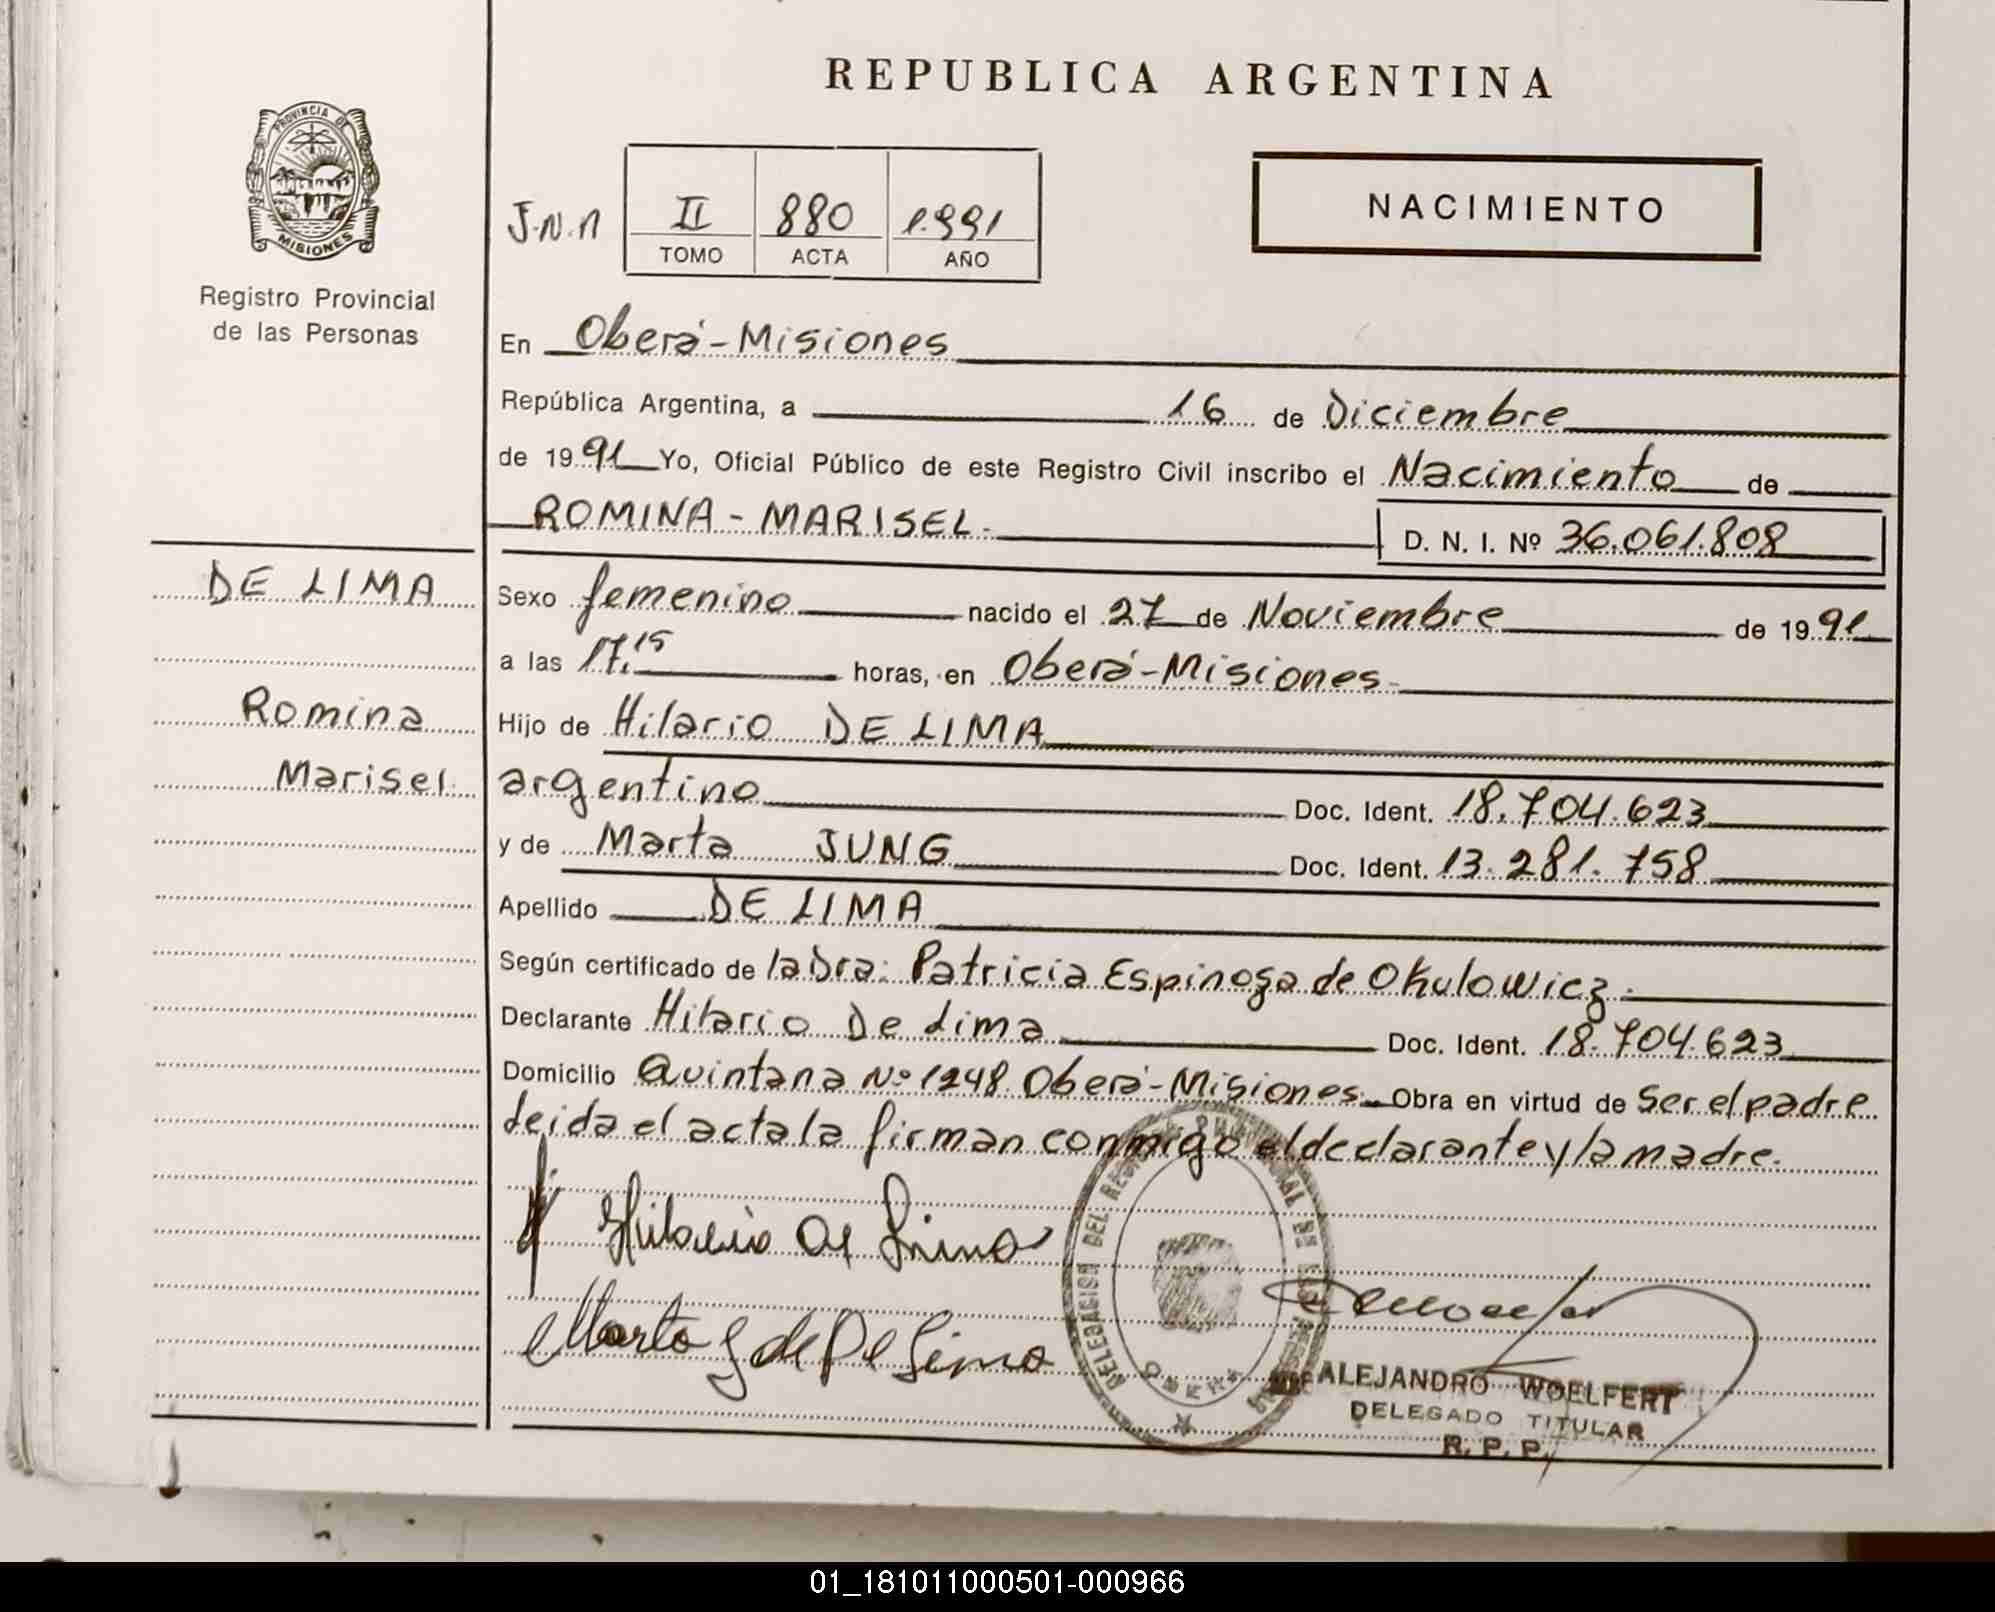 REPUBLICA ARGENTINA
PROVINCIA DE
MISIONES
Registro Provincial
de las Personas
J.N.n
II 880 1.991
TOMO ACTA AÑO
NACIMIENTO
En Oberá-Misiones
República Argentina, a 16 de Diciembre
de 1991 Yo, Oficial Público de este Registro Civil inscribo el Nacimiento de
ROMINA - MARISEL.
D. N. I. Nº 36.061.808
DE LIMA
Romina
Marisel.
Sexo femenino nacido el 27 de Noviembre de 1991
a las 17.15 horas, en Oberá-Misiones.
Hijo de Hilario DE LIMA
argentino Doc. Ident. 18.704.623
y de Marta JUNG Doc. Ident. 13.281.758
Apellido DE LIMA
Según certificado de la Dra: Patricia Espinoza de Okulowicz.
Declarante Hilario De Lima Doc. Ident. 18.704.623
Domicilio Quintana Nº 1248 Oberá-Misiones. Obra en virtud de Ser el padre
Leida el acta la firman conmigo el declarante y la madre.
Hilario De Lima
Marta J de De Lima
DELEGACION DEL REGISTRO PROVINCIAL DE LAS PERSONAS
OBERA
ALEJANDRO WOELFERT
DELEGADO TITULAR
R. P. P.
01_181011000501-000966